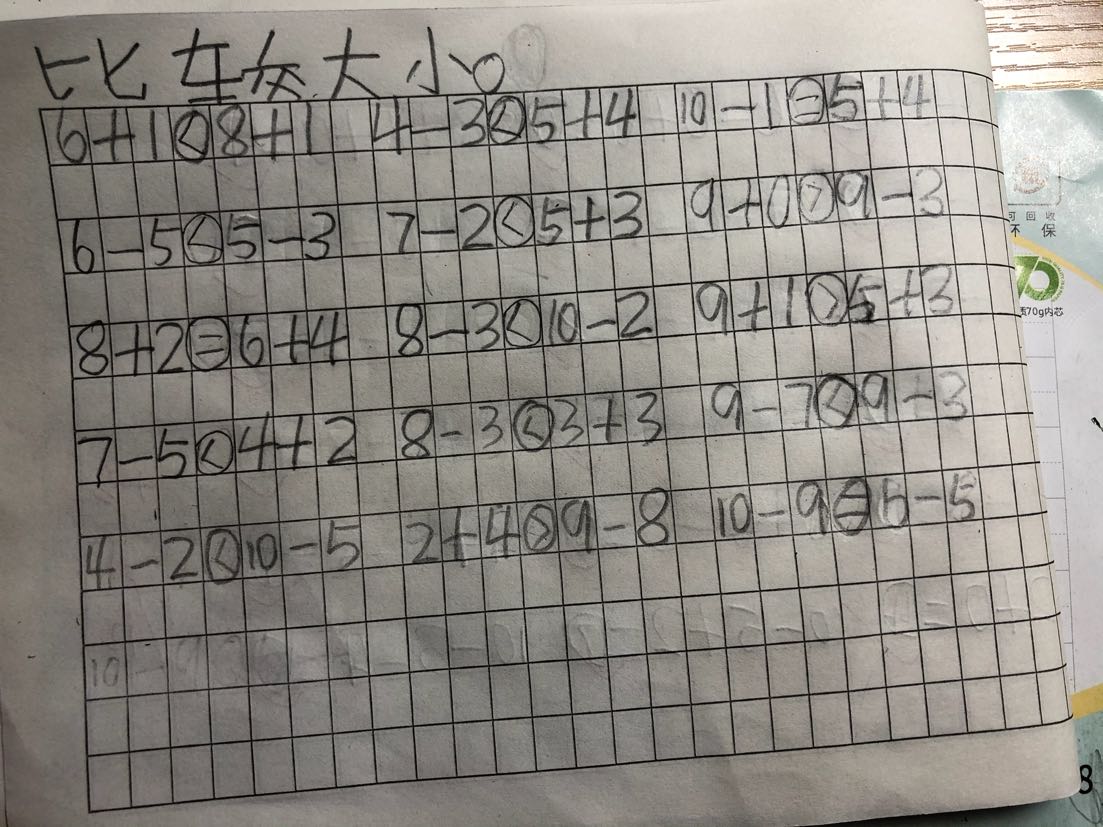 比较大小。
6+1<8+1 4-3<5+4 10-1=5+4
6-5<5-3 7-2<5+3 9+0>9-3
8+2=6+4 8-3<10-2 9+1>5+3
7-5<4+2 8-3<3+3 9-7<9-3
4-2<10-5 2+4>9-8 10-9=5-5
可回收
环保
70
质70g内芯
8